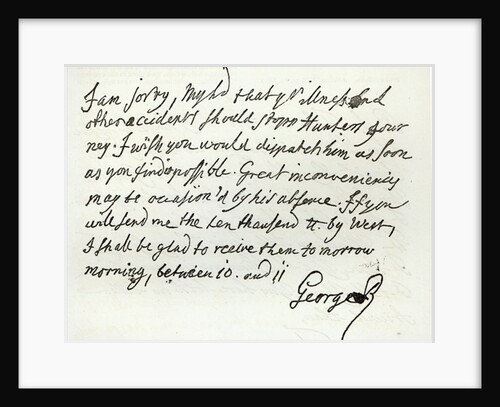 I am sorry, My Ld that yr illness and
other accidents should stopp Hunters Jour
ney. I wish you would dispatch him as soon
as you find possible. Great inconveniencies
may be occasion'd by his absence. If you
will send me the ten thousand tt. by West,
I shall be glad to receive them to morrow
morning, between 10. and 11
George R